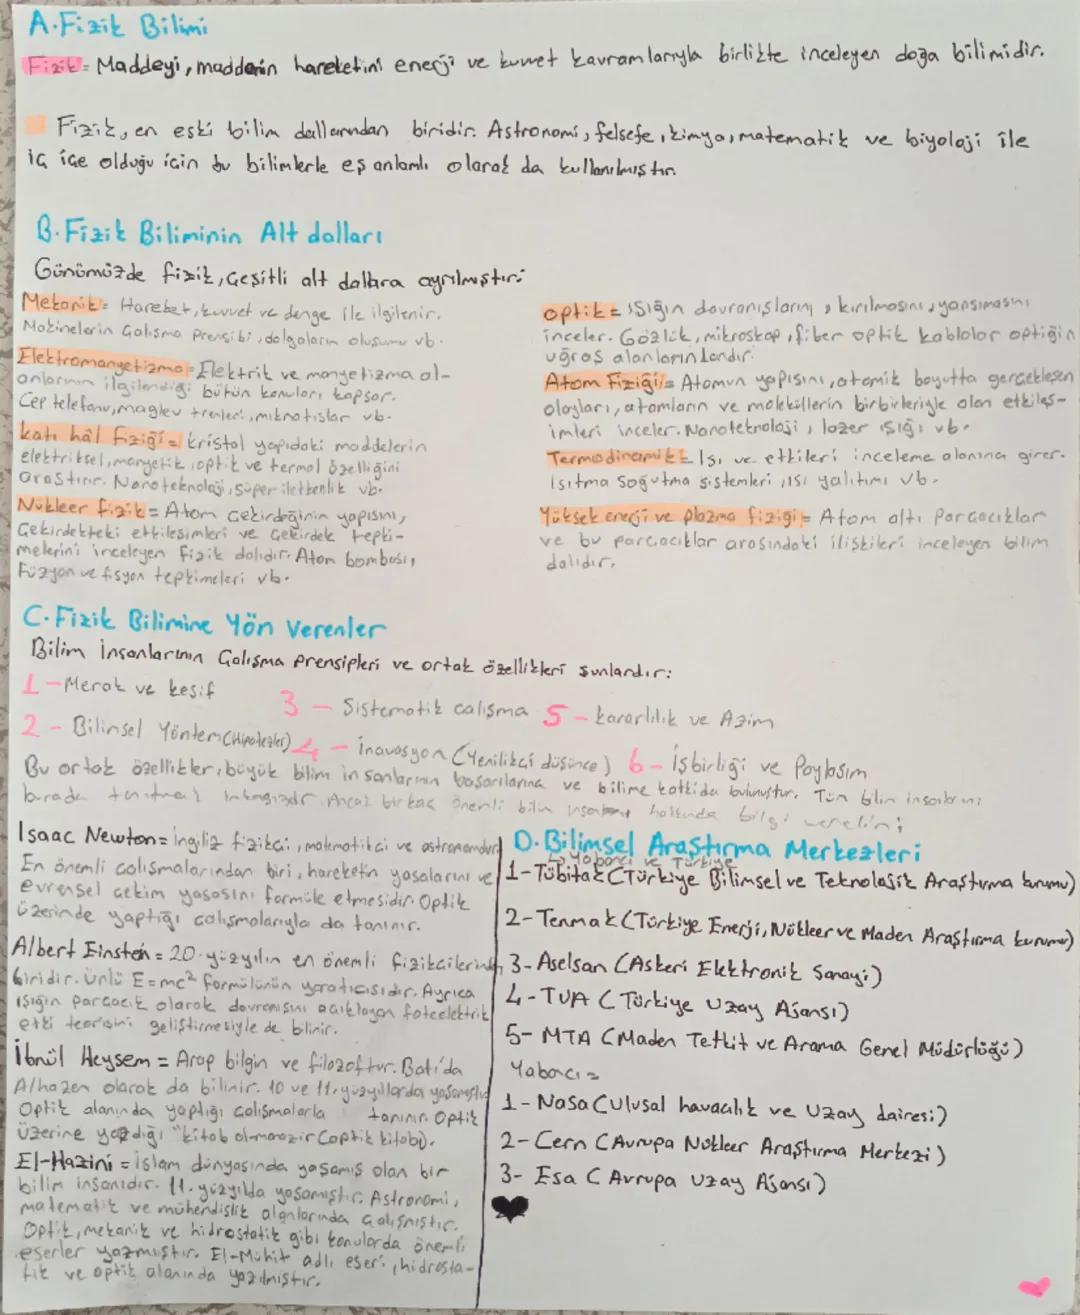 A.Fizik Bilimi
Fizik= Maddeyi, maddenin hareketini enerji ve kuvvet kavramlarıyla birlikte inceleyen doğa bilimidir.
Fizik, en eski bilim dallarından biridir. Astronomi, felsefe, kimya, matematik ve biyoloji ile
iç içe olduğu için bu bilimlerle eş anlamlı olarak da kullanılmıştır.
B.Fizik Biliminin Alt dalları
Günümüzde fizik, çeşitli alt dallara ayrılmıştır:
Mekanik= Hareket, kuvvet ve denge ile ilgilenir.
Makinelerin Çalışma Prensibi, dalgaların oluşumu vb.
Elektromanyetizma= Elektrik ve manyetizma al-
anlarının ilgilendiği bütün konuları kapsar.
Cep telefonu, maglev trenleri, mıknatıslar vb.
katı hâl fiziği= kristal yapıdaki maddelerin
elektriksel, manyetik, optik ve termal özelliğini
araştırır. Nanoteknoloji, süper iletkenlik vb.
Nükleer fizik= Atom Çekirdeğinin yapısını,
Çekirdekteki etkileşimleri ve Çekirdek tepki-
melerini inceleyen fizik dalıdır. Atom bombası,
Füzyon ve fisyon tepkimeleri vb.
optik= ışığın davranışlarını, kırılmasını, yansımasını
inceler. Gözlük, mikroskop, fiber optik kablolar optiğin
uğraş alanlarındandır.
Atom Fiziği= Atomun yapısını, atomik boyutta gerçekleşen
olayları, atomların ve moleküllerin birbirleriyle olan etkileş-
imleri inceler. Nanoteknoloji, lazer ışığı vb.
Termodinamik= Isı ve etkileri inceleme alanına girer.
Isıtma soğutma sistemleri, ısı yalıtımı vb.
Yüksek enerji ve plazma fiziği= Atom altı parçacıklar
ve bu parçacıklar arasındaki ilişkileri inceleyen bilim
dalıdır.
C.Fizik Bilimine Yön Verenler
Bilim İnsanlarının Çalışma Prensipleri ve ortak özellikleri şunlardır:
1-Merak ve keşif
3- Sistematik çalışma 5- kararlılık ve Azim
2- Bilimsel Yöntem(Hipotezler) 4- inovasyon (Yenilikçi düşünce) 6- İşbirliği ve Paylaşım
Bu ortak özellikler, büyük bilim insanlarının başarılarına ve bilime katkıda bulunuştur. Tüm bilim insanlarını
burada tanıtmak imkansızdır. Ancak birkaç önemli bilim insanı hakkında bilgi verelim;
Isaac Newton= ingiliz fizikçi, matematikçi ve astronomdur.
En önemli çalışmalarından biri, hareketin yasalarını ve
evrensel çekim yasasını formüle etmesidir. Optik
üzerinde yaptığı çalışmalarıyla da tanınır.
Albert Einstein= 20. yüzyılın en önemli fizikçilerinden
biridir. Ünlü E=mc² formülünün yaratıcısıdır. Ayrıca
ışığın parçacık olarak davranışını açıklayan fotoelektrik
etki teorisini geliştirmesiyle de bilinir.
İbnül Heysem= Arap bilgin ve filozoftur. Batı'da
Alhazen olarak da bilinir. 10 ve 11. yüzyıllarda yaşamıştır
Optik alanında yaptığı çalışmalarla tanınır. Optik
üzerine yazdığı "kitab al-manazir (optik kitabı).
El-Hazini= islam dünyasında yaşamış olan bir
bilim insanıdır. 11. yüzyılda yaşamıştır. Astronomi,
matematik ve mühendislik alanlarında çalışmıştır.
Optik, mekanik ve hidrostatik gibi konularda önemli
eserler yazmıştır. El-Muhit adlı eseri, hidrosta-
tik ve optik alanında yazılmıştır.
D.Bilimsel Araştırma Merkezleri
↳ Yabancı ve Türkiye
1-Tübitak (Türkiye Bilimsel ve Teknolojik Araştırma kurumu)
2-Tenmak (Türkiye Enerji, Nükleer ve Maden Araştırma kurumu)
3-Aselsan (Askeri Elektronik Sanayi)
4-TUA (Türkiye Uzay Ajansı)
5- MTA (Maden Tetkit ve Arama Genel Müdürlüğü)
Yabancı=
1- Nasa (Ulusal havacılık ve Uzay dairesi)
2- Cern (Avrupa Nükleer Araştırma Merkezi)
3- Esa (Avrupa Uzay Ajansı)